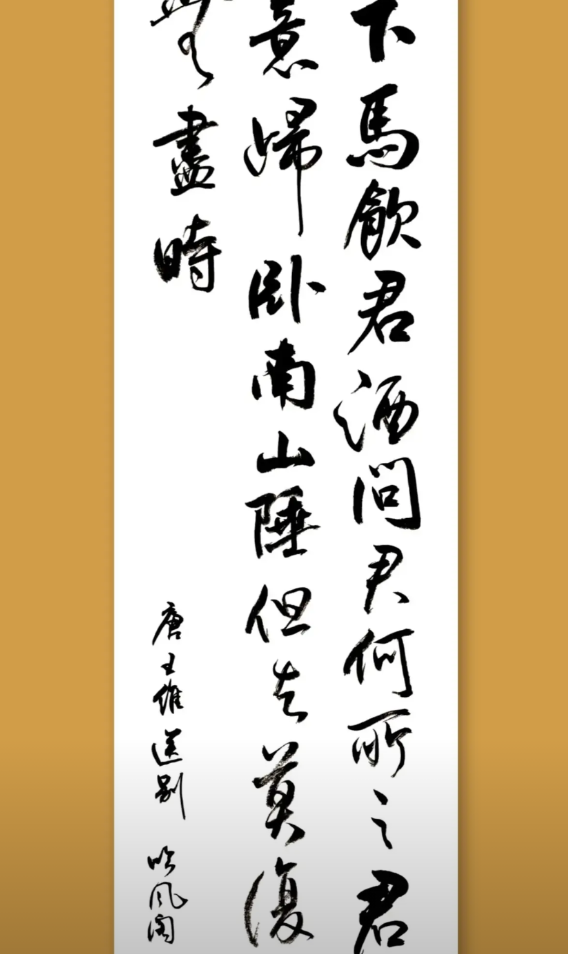 下馬飲君酒問君何所之君
意歸卧南山陲但去莫復
無盡時
唐王維送別 吟風閣